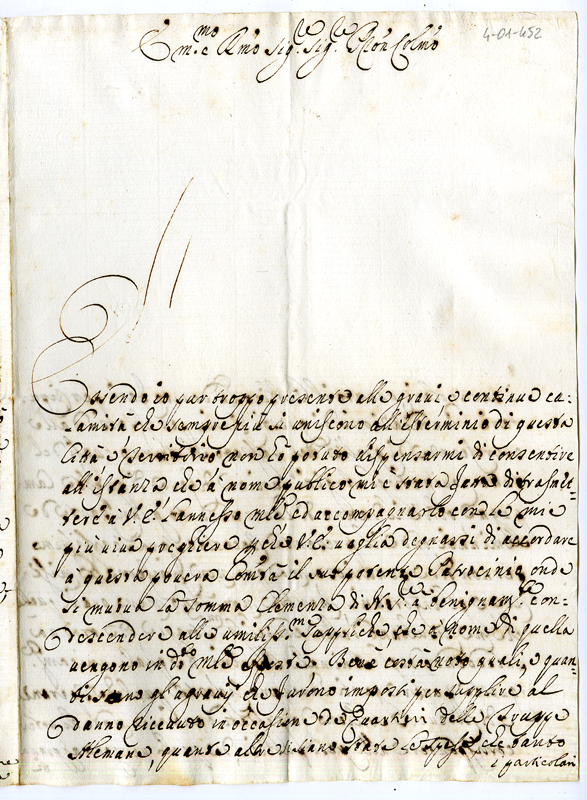 4-01-452
Em.mo e Rmo Sig.re Sig.re Pron Colmo
Essendo io pur troppo presente alle gravi e continue ca=
lamità che sempre più si uniscono all'Esterminio di questa
Città e Territorio non hò potuto dispensarmi di consentire
all'istanza che à nome publico mi è stata fatta di trasmet=
tere à V. E. l'annesso mle ed accompagnarlo con le mie
più vive preghiere, pche V. E. voglia degnarsi di accordare
à questa povera Comtà il suo potente Patrocinio onde
si muova la somma Clemenza di N. Sre a benignamte con=
descendere alle umiliss.me suppliche, che a nome di quella
vengono in do mle esposte. Bene essa noto quali, e quan=
ti siano gli aggravij che furono imposti per supplire al
danno riceuuto in occasione de Quartieri delle Truppe
Alemane, quante altre siano state le spese, che tanto
i particolari